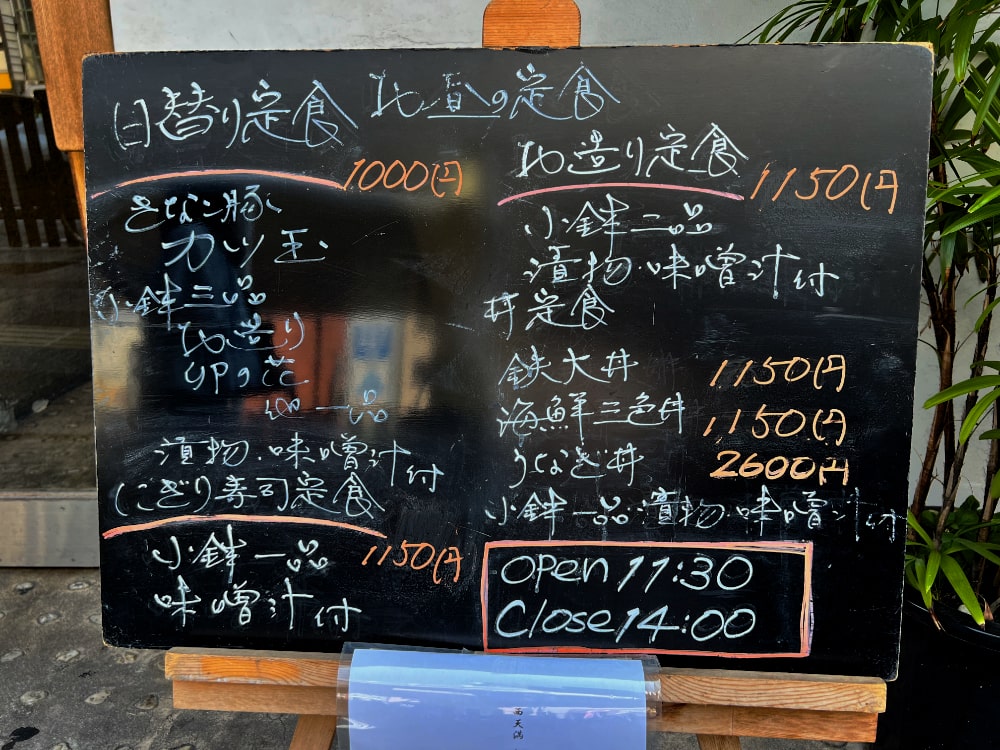 日替り定食
1000円
きなこ豚
カツ玉
小鉢三品
お造り
卯の花
他一品
漬物・味噌汁付
にぎり寿司定食
小鉢一品
1150円
味噌汁付
お昼の定食
お造り定食
1150円
小鉢二品
漬物・味噌汁付
丼定食
鉄火丼 1150円
海鮮三色丼 1,150円
うなぎ丼 2600円
小鉢一品・漬物・味噌汁付
OPen 11:30
Close 14:00
西天満